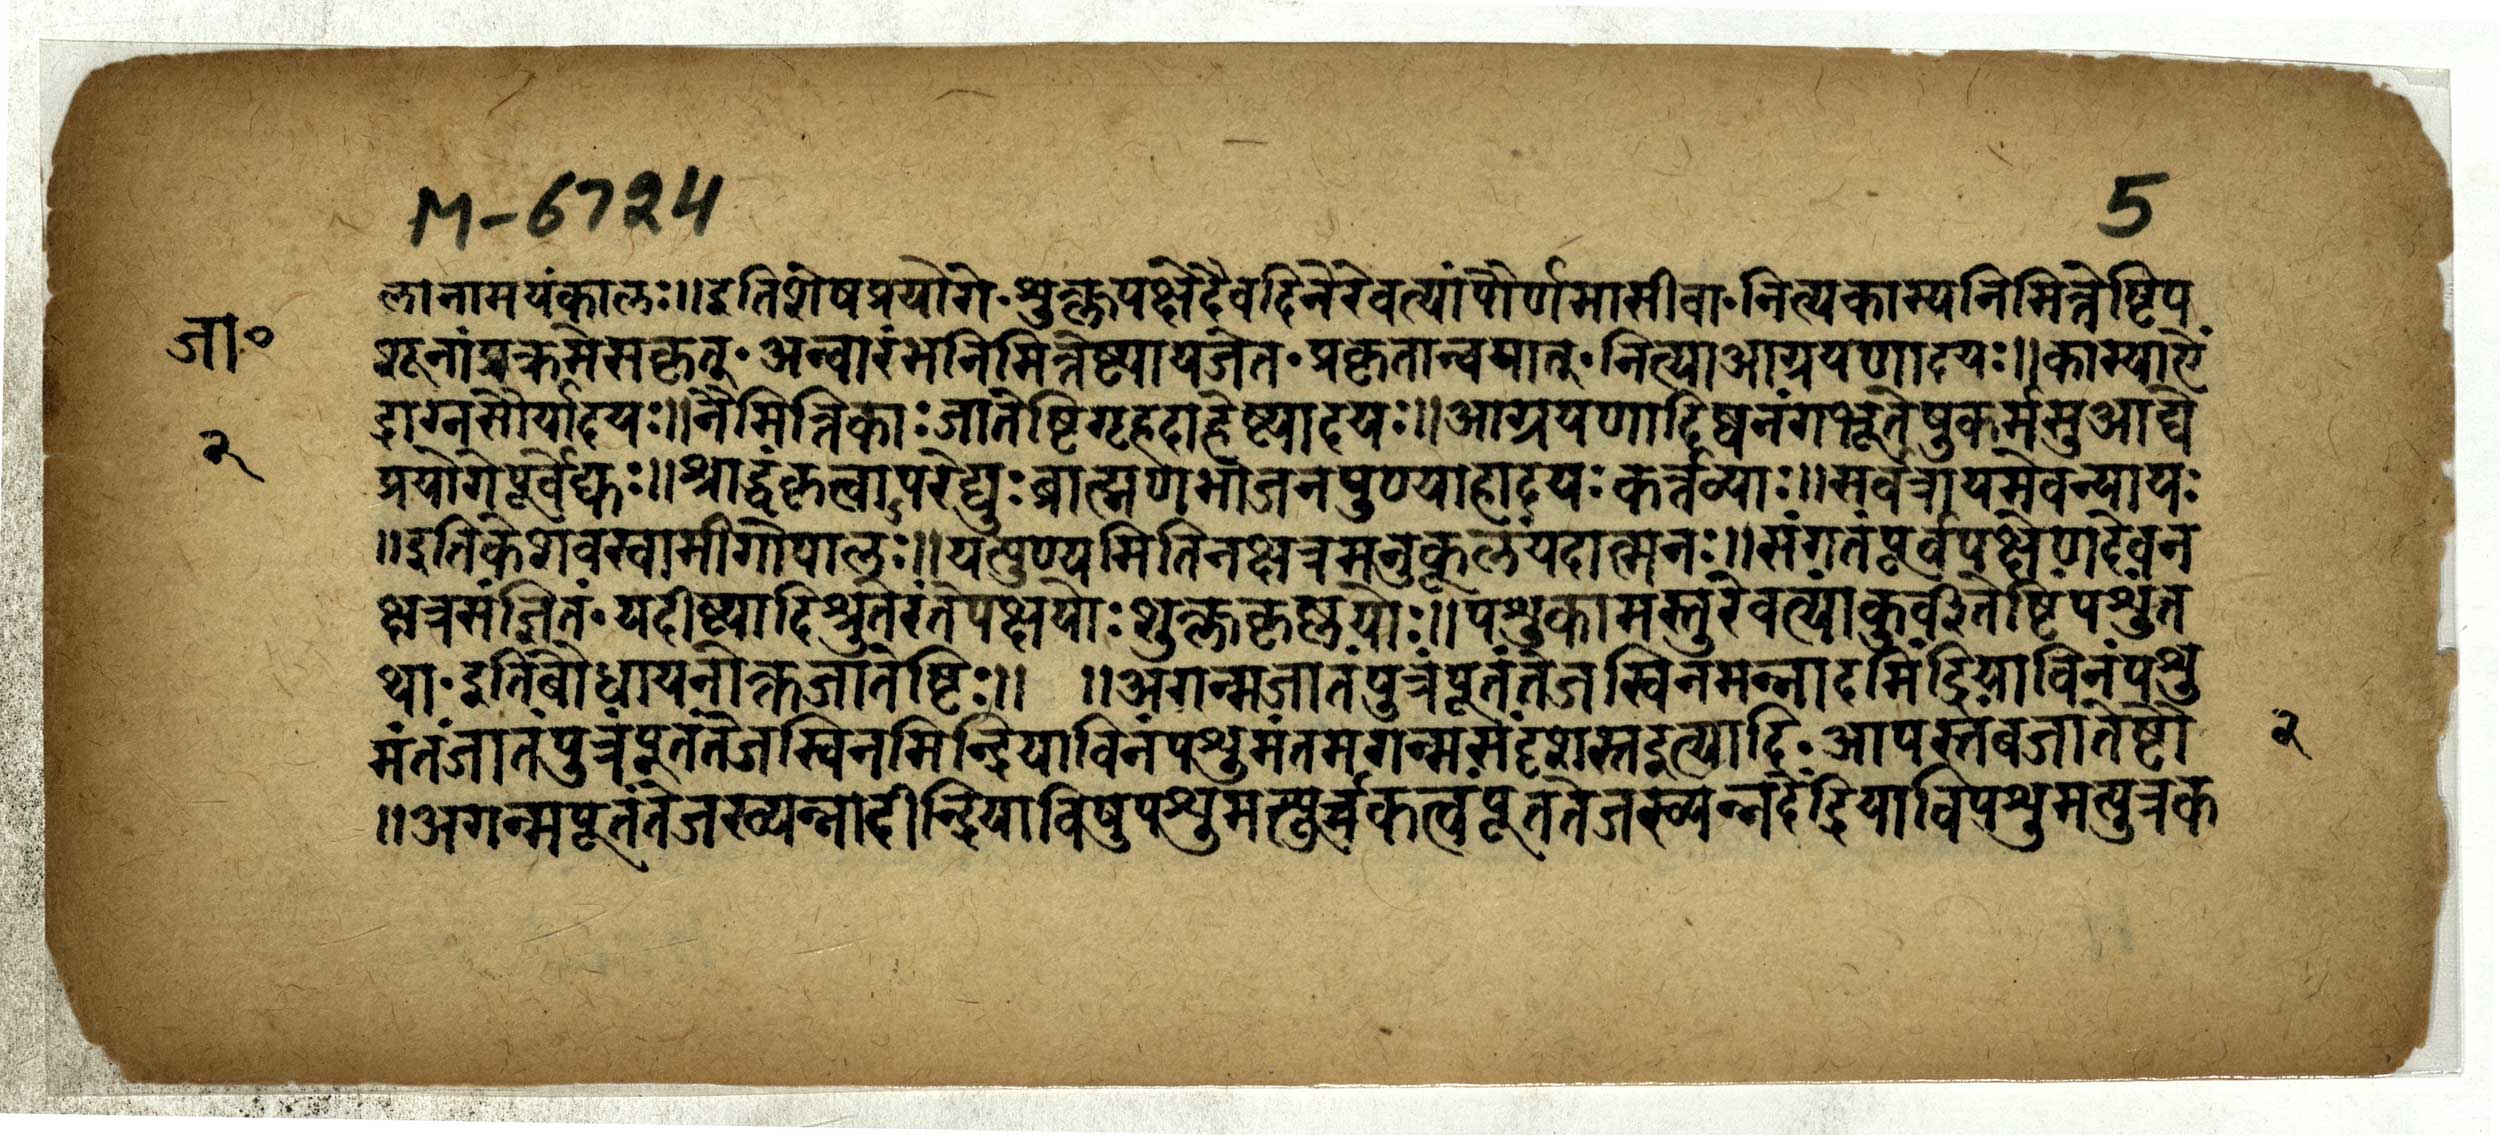 M-6724
5
लानामयंकालः॥इतिशेषप्रयोगे·शुक्लपक्षेदैवदिनेरेवत्यांपौर्णमासीवा·नित्यकाम्यनिमित्तेष्टिप
जा॰
शूनांप्रक्रमेसकृत्तु·अन्वारंभनिमित्तेष्ट्यायजेत·प्रकृतान्वयात्तु·नित्याआग्रयणादयः॥काम्याऐं
द्राग्नसौर्यादयः॥नैमित्तिकाःजातेष्टिगृहदाहेष्ट्यादयः॥आग्रयणादिष्वनंगभूतेषुकर्मसुआद्ये
२
प्रयोगेपूर्वेद्युः॥श्राद्धंकृत्वापरेद्युःब्राह्मणभोजनपुण्याहादयःकर्त्तव्याः॥सर्वत्रायमेवन्यायः
॥इतिकेशवस्वामीगोपालः॥यत्पुण्यमितिनक्षत्रमनुकूलंयदात्मनः॥संगतंपूर्वपक्षेणदेवन
क्षत्रसंज्ञितं·यदीष्ट्यादिश्रुतेरंतेपक्षयोःशुक्लकृष्णयोः॥पशुकामस्तुरेवत्यांकुर्वीतेष्टिंपशुंत
था·इतिबौधायनोक्तजातेष्टिः॥ ॥अगन्मजातंपुत्रंपूतंतेजस्विनमन्नादमिंद्रियाविनंपशु
मंतंजातंपुत्रंपूतंतेजस्विनमिन्द्रियाविनंपशुमंतमगन्मसंदृशस्तइत्यादि·आपस्तंबजातेष्टौ
२
॥अगन्मपूतंतेजस्व्यन्नादीन्द्रियाविषुपशुमत्पुत्रकत्वंपूततेजस्व्यन्नदेंद्रियाविपशुमत्पुत्रक